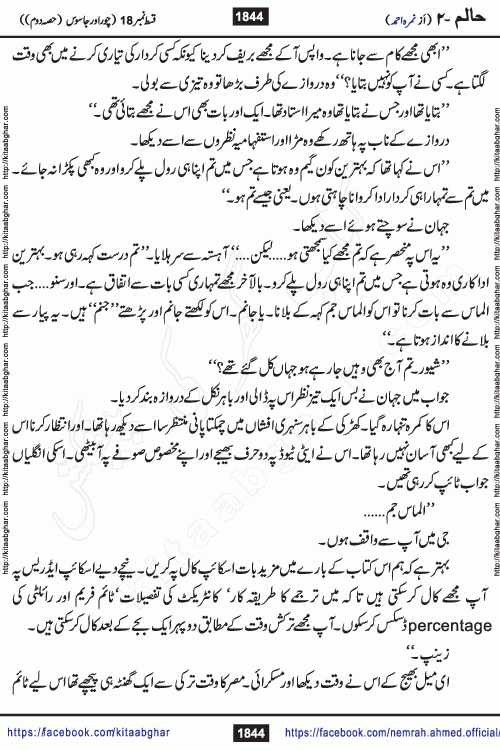 حالم -۲ (از نمرہ احمد) 1844 قسط نمبر 18 (چور اور جاسوس (حصہ دوم))
’’ابھی مجھے کام سے جانا ہے۔ واپس آ کے مجھے بریف کر دینا کیونکہ کسی کردار کی تیاری کرنے میں بھی وقت
لگتا ہے کسی نے آپ کو نہیں بتایا؟‘‘ وہ دروازے کی طرف بڑھا تو وہ تیزی سے بولی۔
’’بتایا تھا اور جس نے بتایا تھا وہ میرا استاد تھا۔ ایک اور بات بھی اس نے مجھے بتائی تھی۔‘‘
دروازے کے ناب پہ ہاتھ رکھے وہ مڑا اور استفہامیہ نظروں سے اسے دیکھا۔
’’اس نے کہا تھا کہ بہترین کون گیم وہ ہوتا ہے جس میں تم اپنا ہی رول پلے کرو اور وہ کبھی پکڑا نہ جائے۔
میں تم سے تمہارا ہی کردار ادا کروانا چاہتی ہوں۔ یعنی جیسے تم ہو۔‘‘
جہان نے سوچتے ہوئے اسے دیکھا۔
’’یہ اس پہ منحصر ہے کہ تم مجھے کیا سمجھتی ہو.....لیکن....‘‘ آہستہ سے سر ہلایا۔ ’’تم درست کہہ رہی ہو۔ بہترین
اداکاری وہ ہوتی ہے جس میں تم اپنا ہی رول پلے کرو۔ بالآخر مجھے تمہاری کسی بات سے اتفاق ہے۔ اور سنو....جب
الماس سے بات کرنا تو اس کو الماس جم کہہ کے بلانا۔ یا جانم۔ اس کو لکھتے جانم اور پڑھتے ’’جنم‘‘ ہیں۔ یہ پیار سے
بلانے کا انداز ہوتا ہے۔‘‘
’’شیور۔ تم آج بھی وہیں جا رہے ہو جہاں کل گئے تھے؟‘‘
جواب میں جہان نے بس ایک تیز نظر اس پہ ڈالی اور باہر نکل کے دروازہ بند کر دیا۔
اس کا کمرہ تنہا رہ گیا۔ کھڑکی کے باہر سنہری افشاں میں چمکتا پانی منتظر سا اسے دیکھ رہا تھا۔ اور انتظار کرنا اس
کے لیے کبھی آسان نہیں رہا تھا۔ اس نے اینٹی ٹیوڈ پہ دو حرف بھیجے اور اپنے مخصوص صوفے پہ آ بیٹھی۔ اسکی انگلیاں
جواب ٹائپ کر رہی تھیں۔
’’الماس جم......
جی میں آپ سے واقف ہوں۔
بہتر ہے کہ ہم اس کتاب کے بارے میں مزید بات اسکائپ کال پہ کریں۔ نیچے دیے اسکائپ ایڈریس پہ
آپ مجھے کال کر سکتی ہیں تاکہ میں ترجمے کا طریقہ کار‘ کانٹریکٹ کی تفصیلات‘ ٹائم فریم اور رائلٹی کی
percentage ڈسکس کر سکوں۔ آپ مجھے ترکش وقت کے مطابق دوپہر ایک بجے کے بعد کال کر سکتی ہیں۔
زینب۔‘‘
ای میل بھیج کے اس نے وقت دیکھا اور مسکرائی۔ مصر کا وقت ترکی سے ایک گھنٹہ ہی پیچھے تھا اس لیے ٹائم
https://facebook.com/kitaabghar 1844 https://facebook.com/nemrah.ahmed.official/
http://kitaabghar.com
kitaabghar.com